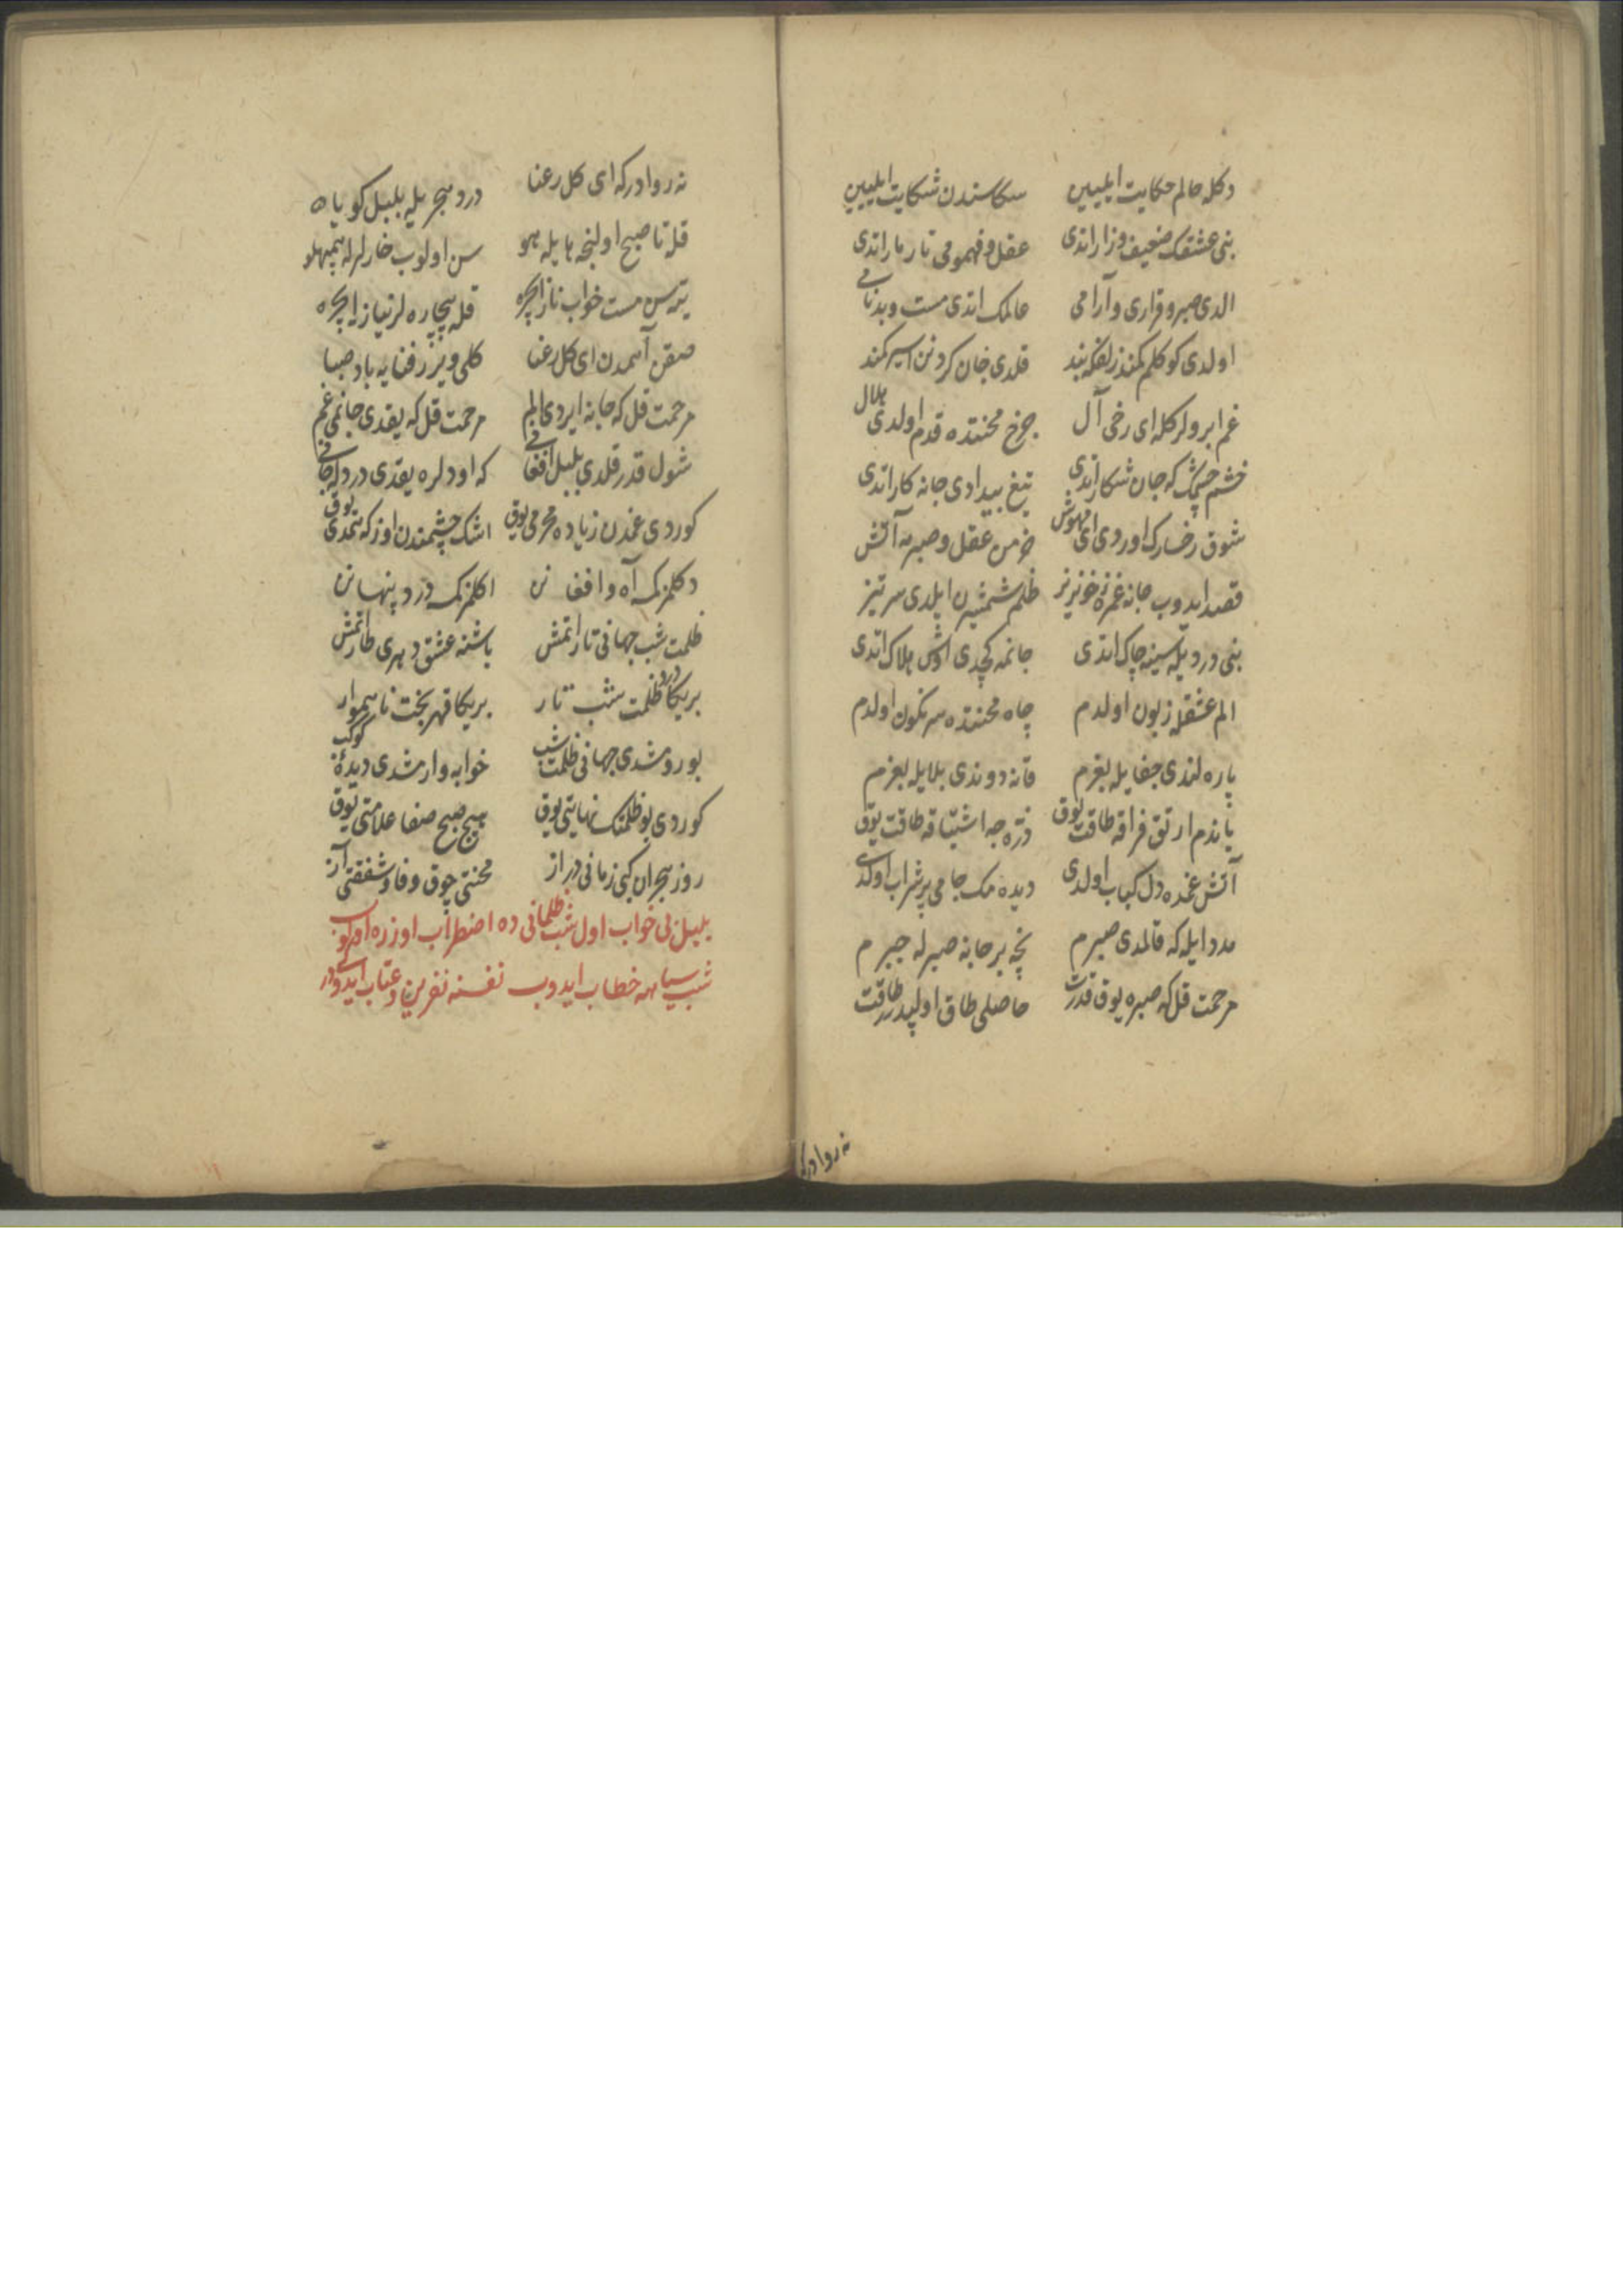 دكله حالم حكايت ايليين سكا سندن شكايت ايليين
بنی عشقك ضعيف و زار اتدی عقل و فهمومی تار مار اتدی
الدی صبر و قراری و آرامی عالمك اتدی مست و بدنامی
اولدی كوكلم كمند زلفكه بند قلدی جان كردنن اسير كمند
غم ابرولركله ای رخی آل چرخ محنتده قدم اولدی هلال
خشم چشمك كه جان شكار اتدی تيغ بيدادی جانه كار اتدی
شوق رخسارك اوردی ای مهوش خرمن عقل و صبريمه آتش
قصد ايدوب جانه غمزۀ خونريز ظلم شمشيرن ايلدی سرتيز
بنی درديله سينه چاك اتدی جانمه كچدی اوش هلاك اتدی
الم عشقله زبون اولدم چاه محنتده سرنكون اولدم
پاره لندی جفايله بغرم قانه دوندی بلايله بغرم
ياندم ارتق فراقه طاقت يوق ذره جه اشتياقه طاقت يوق
آتش غمده دل كباب اولدی ديده مك جامی پر شراب اولدی
مدد ايله كه قالمدی صبرم نچه بر جانه صبرله جبرم
مرحمت قل كه صبره يوق قدرت حاصلی طاق اولپدر طاقت
نه روادركه
نه روادركه ای كل رعنا درد هجريله بلبل كويا
قله تا صبح اولنجه هايله هو سن اولوب خارلرله همپهلو
يته سن مست خواب ناز ايچره قله بيچاره لر نياز ايچره
صقن آهمدن ای كل رعنا كلی ويرر فنايه باد صبا
مرحمت قل كه جانه ايردی الم مرحمت قل كه يقدی جانمی غم
شول قدر قلدی بلبل افغانی كه اودلره يقدی دردله جانی
كوردی غمدن زياده محرمی يوق اشك چشمندن اوزكه همدمی يوق
دكلمزكمسه آه و افغانن اكلمزكمسه درد پنهانن
ظلمت شب جهانی تار اتمش باشنه عشق دهری طار اتمش
بر يكا درد و ظلمت شب تار بر يكا قهر بخت ناهموار
بورومشدی جهانی ظلمت شب خوابه وارمشدی ديدۀ كوكب
كوردی بو ظلمتك نهايتی يوق هيچ صبح صفا علامتی يوق
روز هجران كبی زمانی دراز محنتی چوق وفا و شفقتی آز
بلبل بی خواب اول شب ظلمانی ده اضطراب اوزره اولوب
شب سياهه خطاب ايدوب نفسنه نفرين و عتاب ايدوكی در